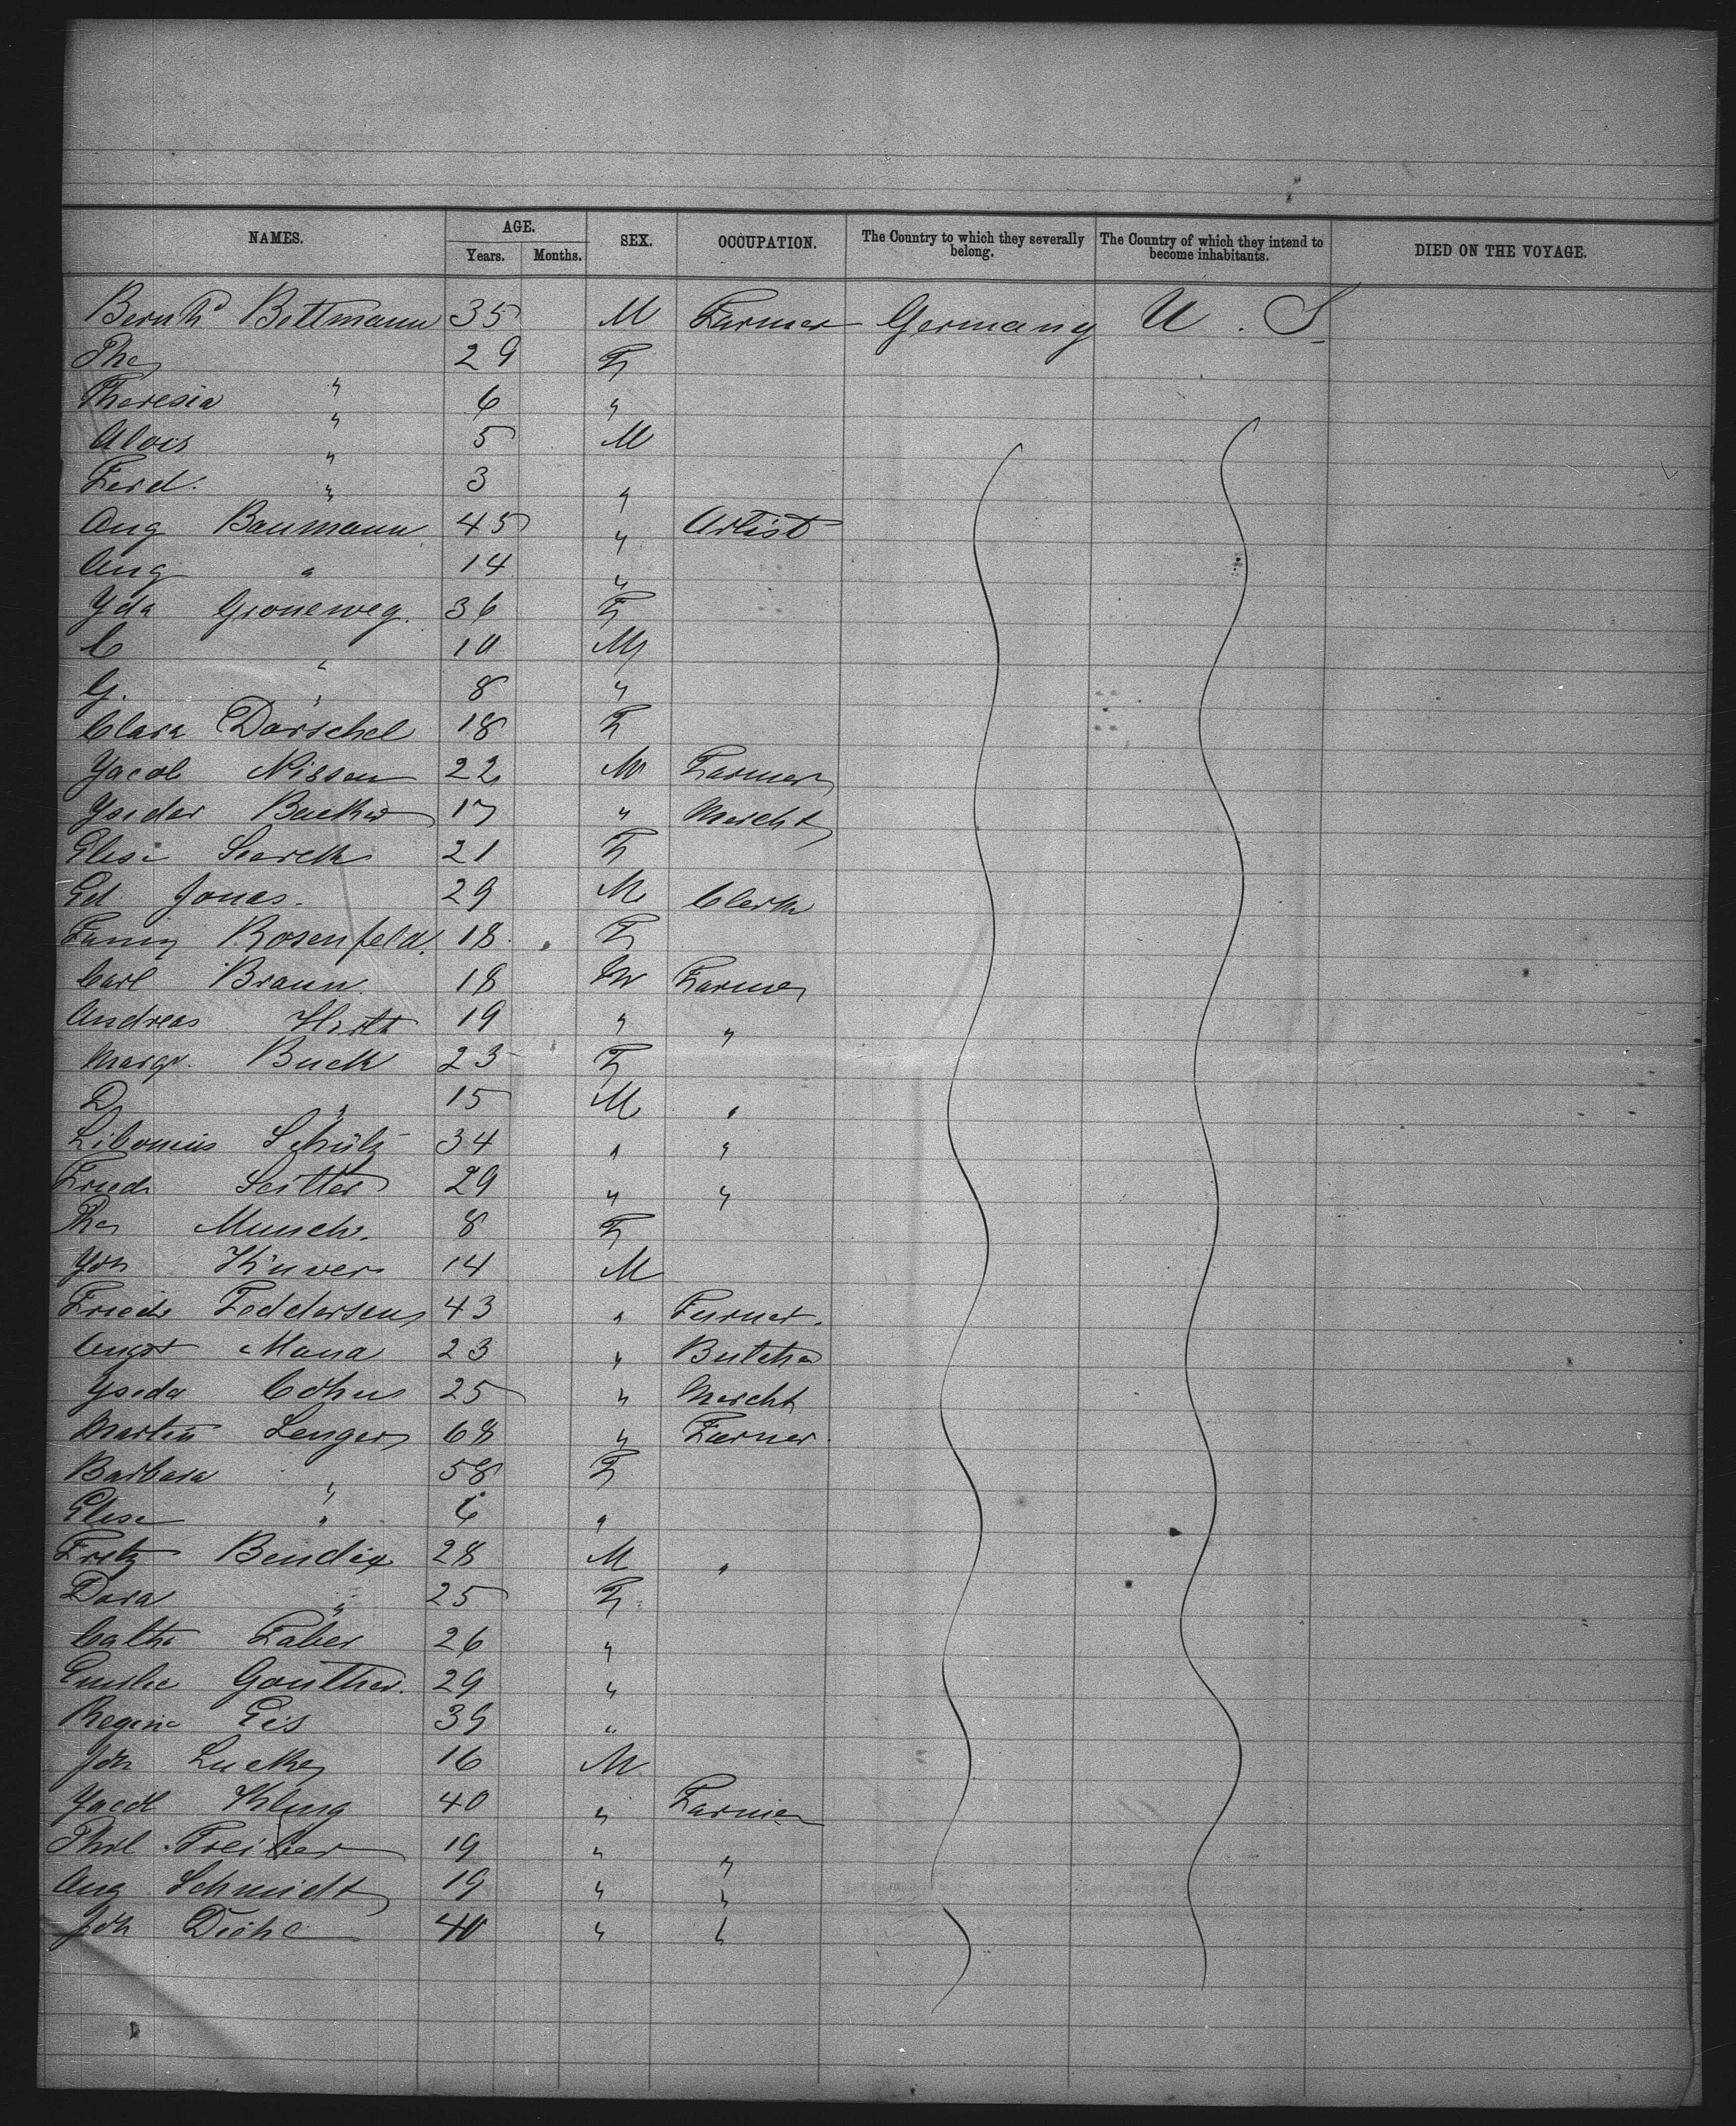 NAMES. AGE. SEX. OCCUPATION. The Country to which they severally belong. The Country of which they intend to become inhabitants. DIED ON THE VOYAGE.
Years. Months.
Bernhd Bettmann 35 M Farmer Germany U. S
Ther 29 F
Theresia " 6 "
Alois " 5 M
Ferd. " 3 "
Aug Baumann 45 " Artist
Aug " 14 "
Yda Groneweg. 36 F
C " 10 M
G. " 8 "
Clara Dorschel 18 F
Jacob Nissen 22 M Farmer
Ysidor 17 " Mercht
Elise 21 F
Ed Jonas. 29 M Clerk
Fanny Rosenfeld. 18. F
Carl Braun 18 M Farmer
Andreas Hirth 19 " "
Margr. Buck 23 F
D " 15 M "
Libonius Schütz 34 " "
Friedr Seitter 29 " "
Ther Munch. 8 F
Joh Küvers 14 M
Friedr Feddersen 43 " Farmer.
Augst Mana 23 " Butcher
Yseda Cohn 25 " Mercht
Martin Lenger 68 " Farmer.
Barbara " 58 F
Elise " 6 "
Fritz Bendix 28 M "
Dora " 25 F
Cath Faber 26 "
Emilie Gonther. 29 "
Regina Eis 39 "
Joh Lucke 16 M
Jacob Kling 40 " Farmer
Phil Treiber 19 " "
Aug Schmidt 19 " "
Joh Diehl 40 " "